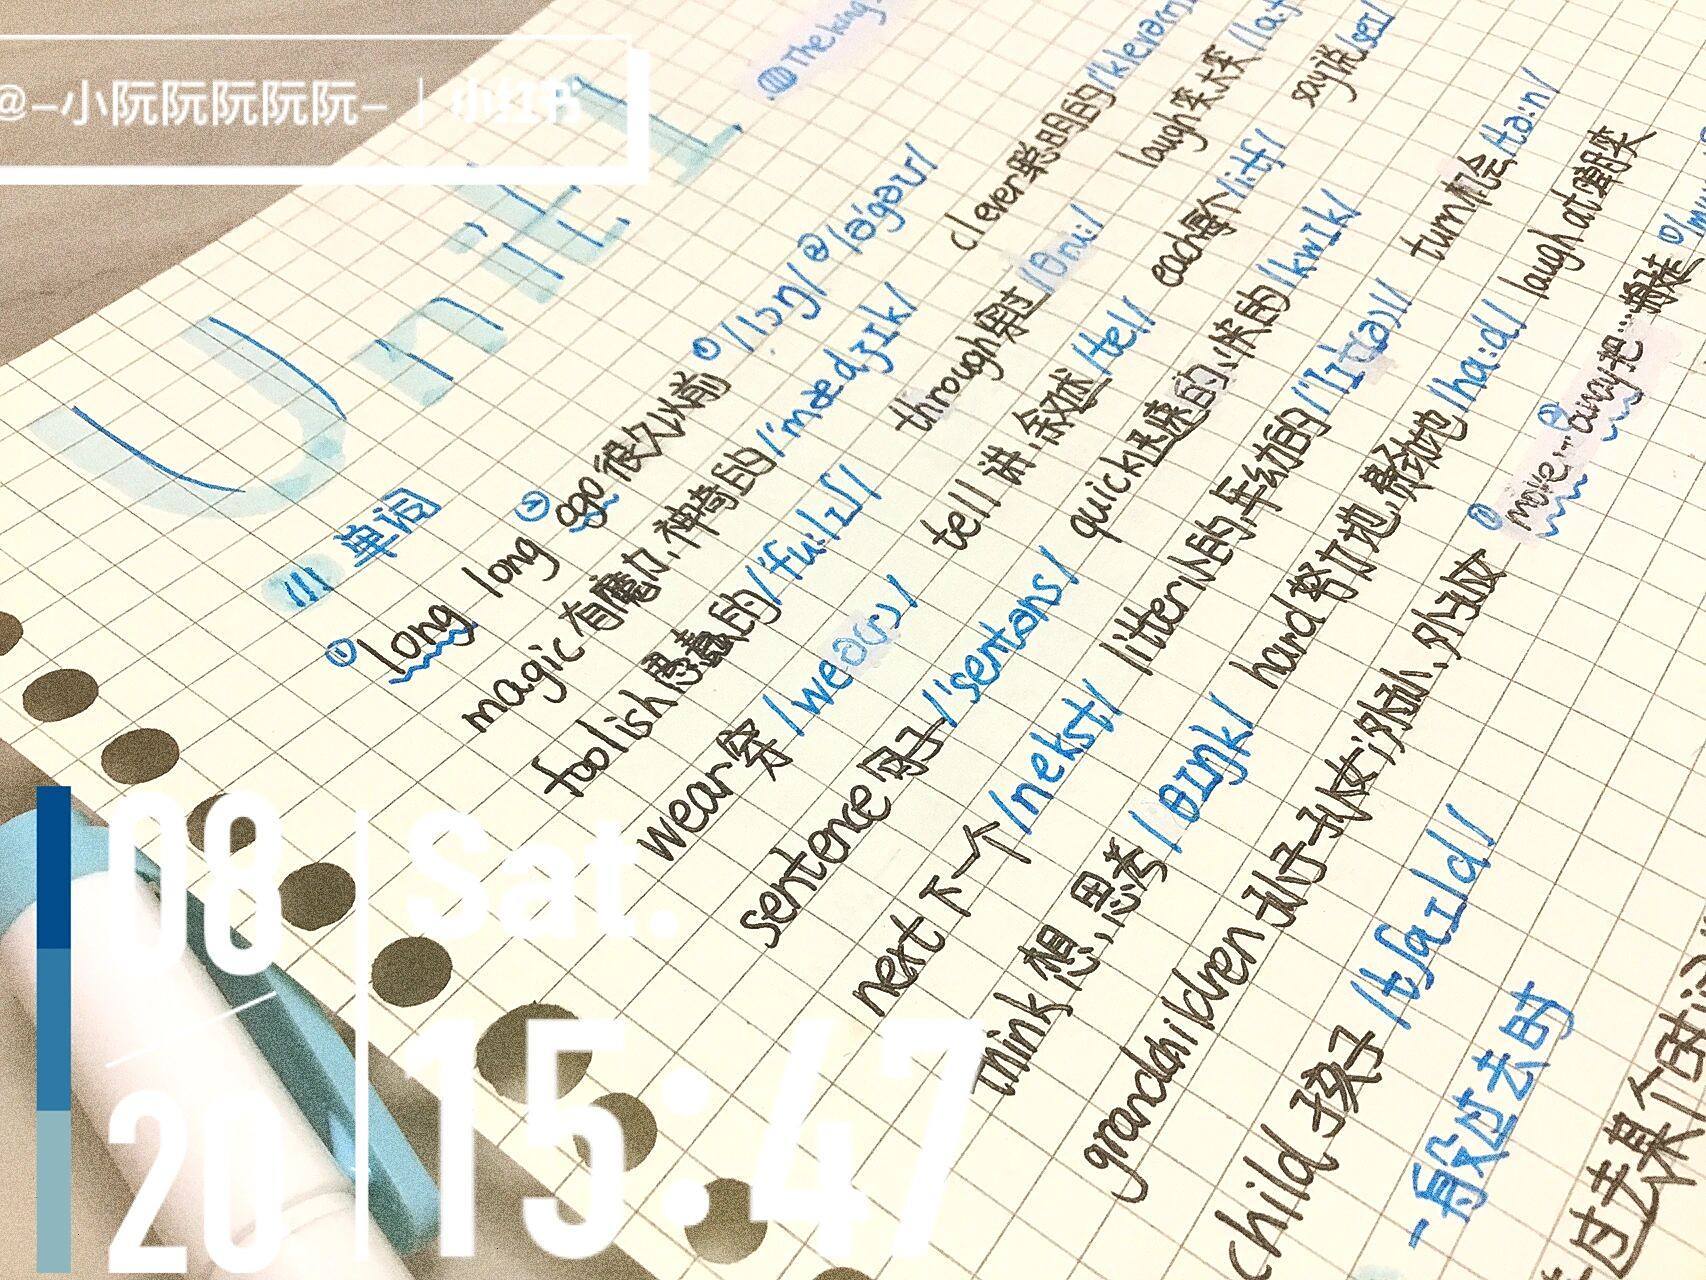 @-小阮阮阮阮阮- | 小红书
Unit 1
单词
① long long ② ago 很久以前 ①/lɔŋ/ ②/ə'gəʊ/
magic 有魔力,神奇的/'mædʒɪk/
foolish 愚蠢的/'fu:lɪʃ/
wear 穿 /weə(r)/
sentence 句子/'sentəns/
next 下一个/nekst/
think 想,思考/θɪŋk/
grandchildren 孙子孙女;外孙、外孙女
child 孩子 /tʃaɪld/
clever 聪明的/'klevə(r)
through 穿过/θru:/
tell 讲 叙述/tel/
quick 迅速的,快的/kwɪk/
litter 小的,年幼的/'lɪt(ə)l/
hard 努力地,费劲地/hɑ:d/
laugh 笑,大笑
each 每个/i:tʃ/
say 说/seɪ/
turn 机会/tə:n/
laugh at 嘲笑
① move… ② away 把…搬走
The king
一般过去时
过去某个时
08
20
Sat.
15:47